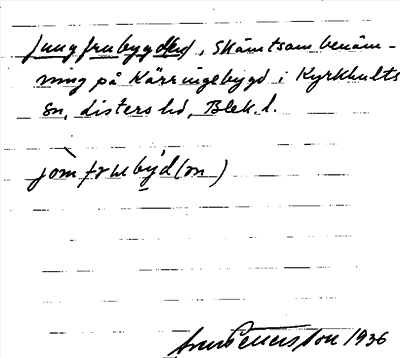 Jungfrubygden, skämtsam benäm-
ning på Kärringebygd i Kyrkhults
sn, Listers hd, Blek. l.
jòmfrubýd(ən)
Pettersson 1936